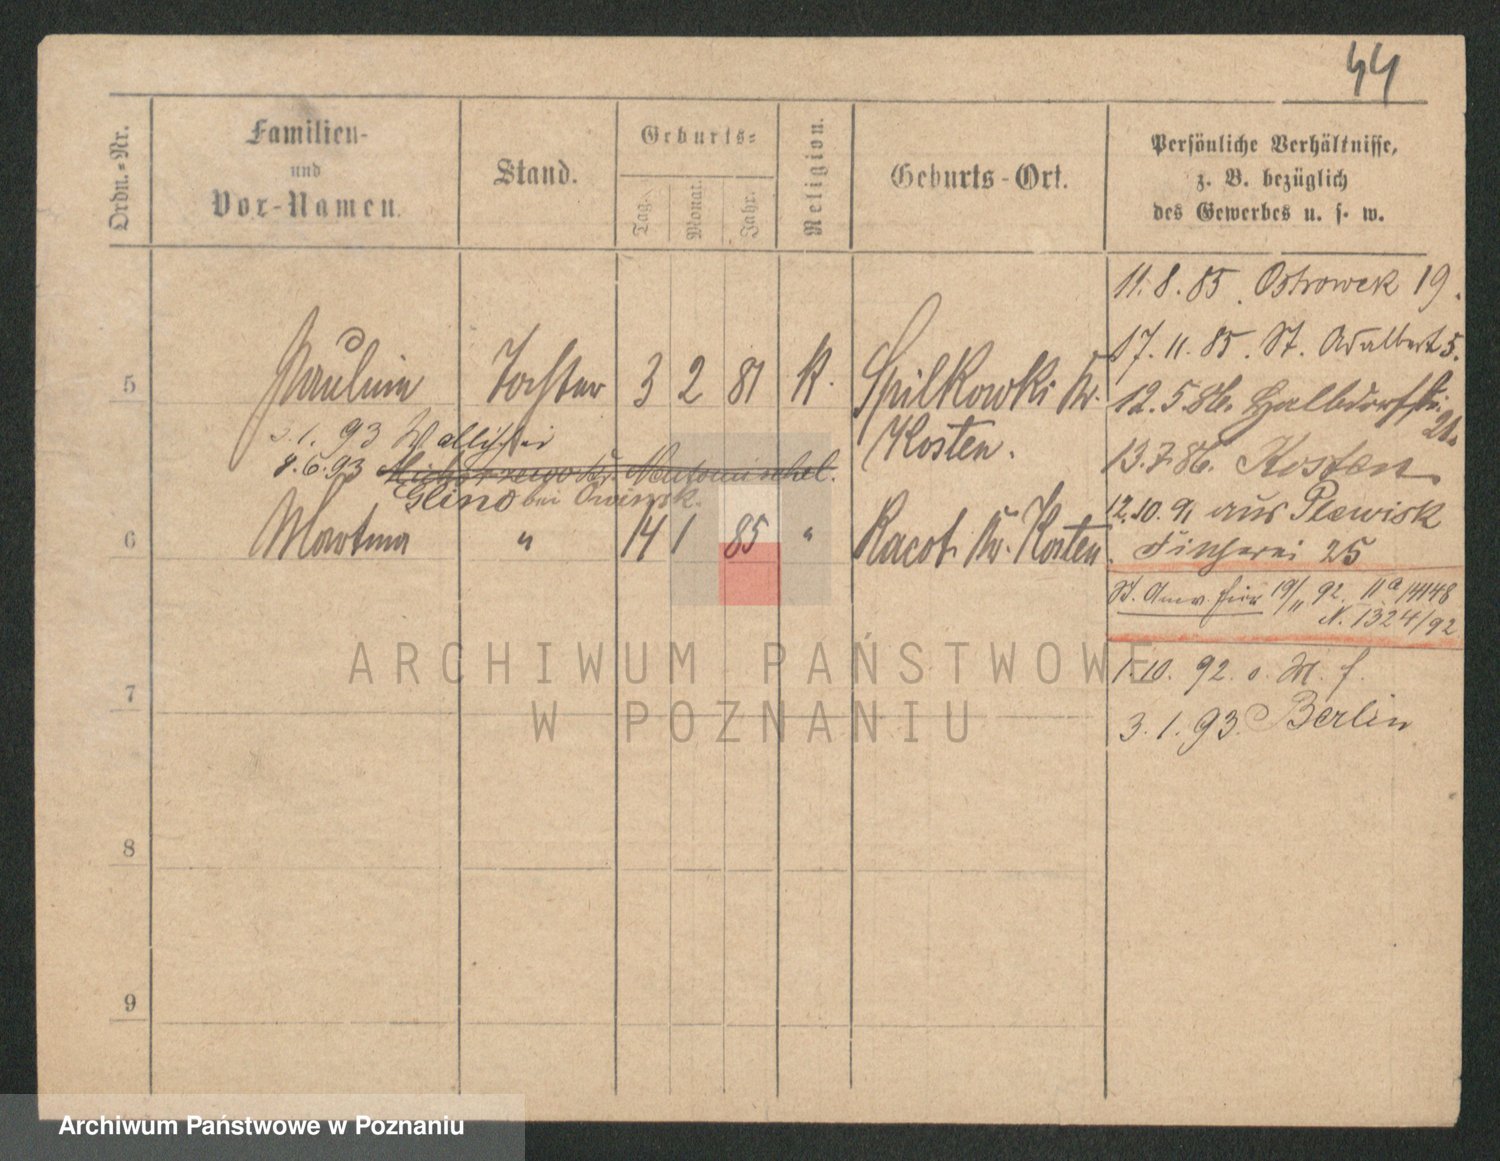 44
Ordn.-Nr.
Familien-
und
Vor-Namen.
Stand.
Geburts-
Tag.
Monat.
Jahr.
Religion.
Geburts-Ort.
Persönliche Verhältnisse,
z. B. bezüglich
des Gewerbes u. s. w.
11.8.85. Ostrowek 19.
17.11.85. St. Adalbert 5.
5 Paulina Tochter 3 2 81 K. Spilkowki Kr.
Kosten.
12.5.86. Halbdorfstr.
21.
3.1.93
8.6.93
Glino bei Owinsk.
13.7.86. Kosten
12.10.91 aus Plewisk
6 Martina " 14 1 85 " Racot Kr. Kosten
Fischerei 25
St. Anw. hier 19/11 92. 11a 14148
N. 1324/92
1.10.92. o. M. f.
7
3.1.93. Berlin
8
9
ARCHIWUM PAŃSTWOWE
W POZNANIU
Archiwum Państwowe w Poznaniu